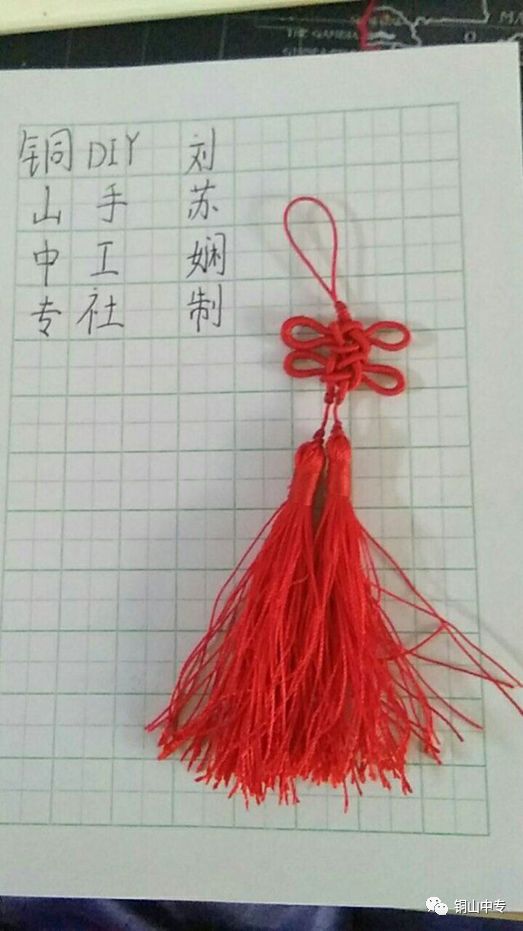 铜山中专
DIY手工社
刘苏娴制
THE GAMBIA
铜山中专